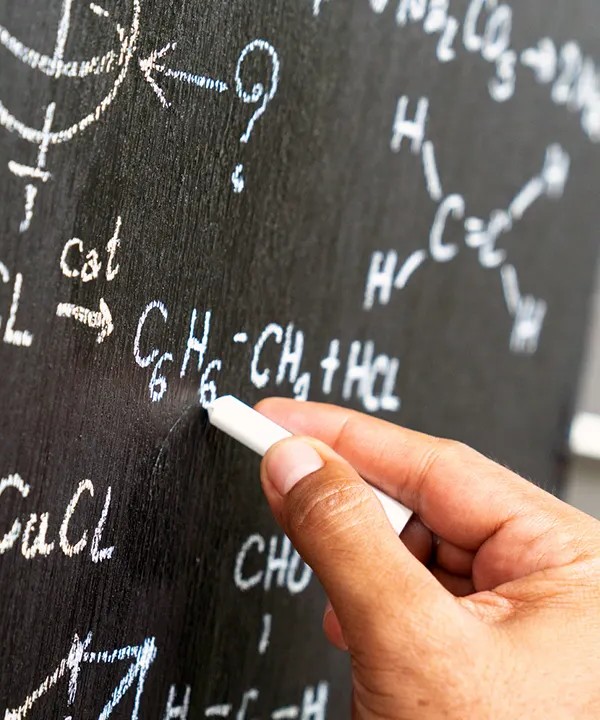 Na₂CO₃ → 2Na
?
H H
C=C
H H
Cat
L → C₆H₆-CH₃+HCL
CaCL
CHO
H-C-H